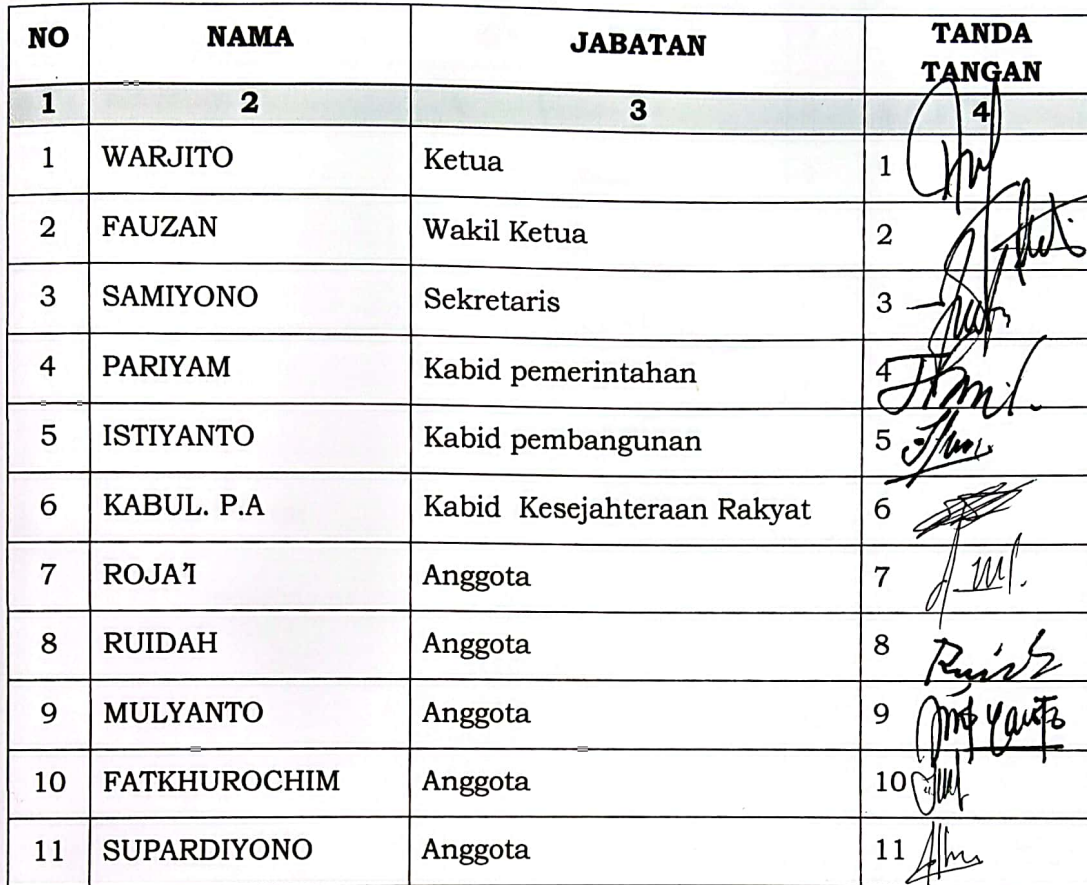 NO NAMA JABATAN TANDA
TANGAN
1 2 3 4
1 WARJITO Ketua 1
2 FAUZAN Wakil Ketua 2
3 SAMIYONO Sekretaris 3
4 PARIYAM Kabid pemerintahan 4
5 ISTIYANTO Kabid pembangunan 5
6 KABUL. P.A Kabid Kesejahteraan Rakyat 6
7 ROJA'I Anggota 7
8 RUIDAH Anggota 8
9 MULYANTO Anggota 9
10 FATKHUROCHIM Anggota 10
11 SUPARDIYONO Anggota 11